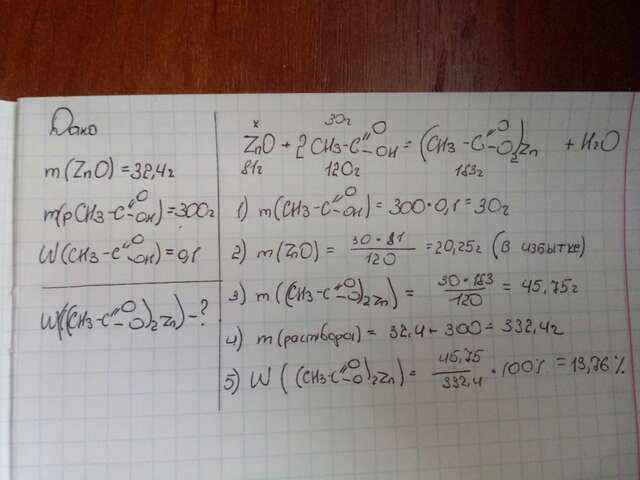 Дано
m(ZnO) = 32,4г
m(р CH3-C=O-OH) = 300г
W(CH3-C=O-OH) = 0,1
W((CH3-C=O-O)2Zn) - ?
x 30г
ZnO + 2CH3-C=O-OH = (CH3-C=O-O)2Zn + H2O
81г 120г 183г
1) m(CH3-C=O-OH) = 300·0,1 = 30г
2) m(ZnO) = 30·81/120 = 20,25г (в избытке)
3) m((CH3-C=O-O)2Zn) = 30·183/120 = 45,75г
4) m(раствора) = 32,4 + 300 = 332,4г
5) W((CH3-C=O-O)2Zn) = 45,75/332,4 · 100% = 13,76%